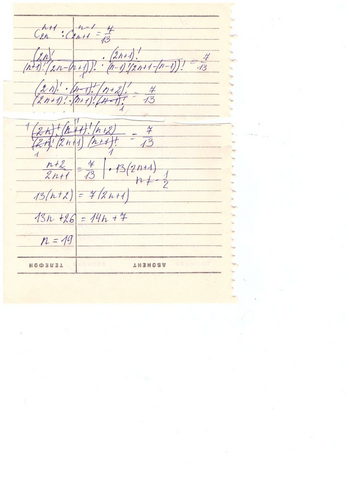 C_{2n}^{n+1} : C_{2n+1}^{n-1} = 7/13
(2n)!/((n+1)!(2n-(n+1))!) : (2n+1)!/((n-1)!(2n+1-(n-1))!) = 7/13
(2n)! · (n-1)! (n+2)!/((2n+1)! · (n+1)! (n-1)!) = 7/13
(2n)! (n+1)! (n+2)/((2n)! (2n+1) (n+1)!) = 7/13
(n+2)/(2n+1) = 7/13 | · 13(2n+1)
n ≠ -1/2
13(n+2) = 7(2n+1)
13n + 26 = 14n + 7
n = 19
ТЕЛЕФОН АБОНЕНТ